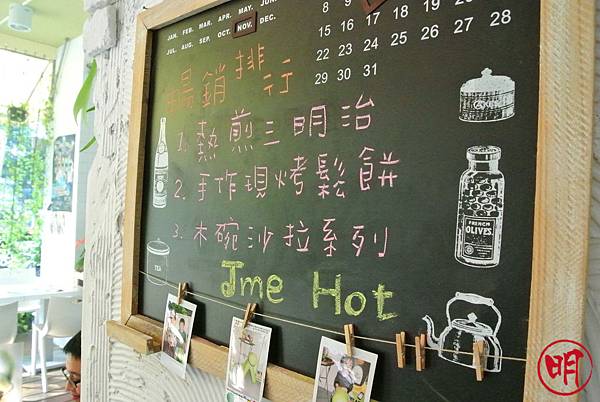 JAN. FEB. MAR. APR. MAY. JUN.
JUL. AUG. SEP. OCT. NOV. DEC.
8 9 10 11 12 13 14
15 16 17 18 19 20 21
22 23 24 25 26 27 28
29 30 31
暢銷排行
1. 熱煎三明治
2. 手作現烤鬆餅
3. 木碗沙拉系列
Jme Hot
COOKIES
FRENCH
OLIVES
TEA
明